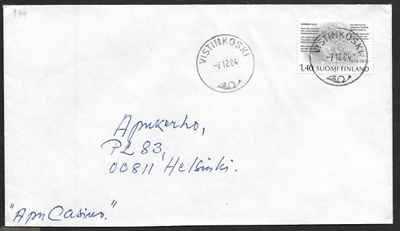 VISTINKOSKI
-7.12.84
VISTINKOSKI
-7.12.84
1,40 SUOMI FINLAND
Apukerho,
PL 83,
00811 Helsinki.
"Apu Casino."